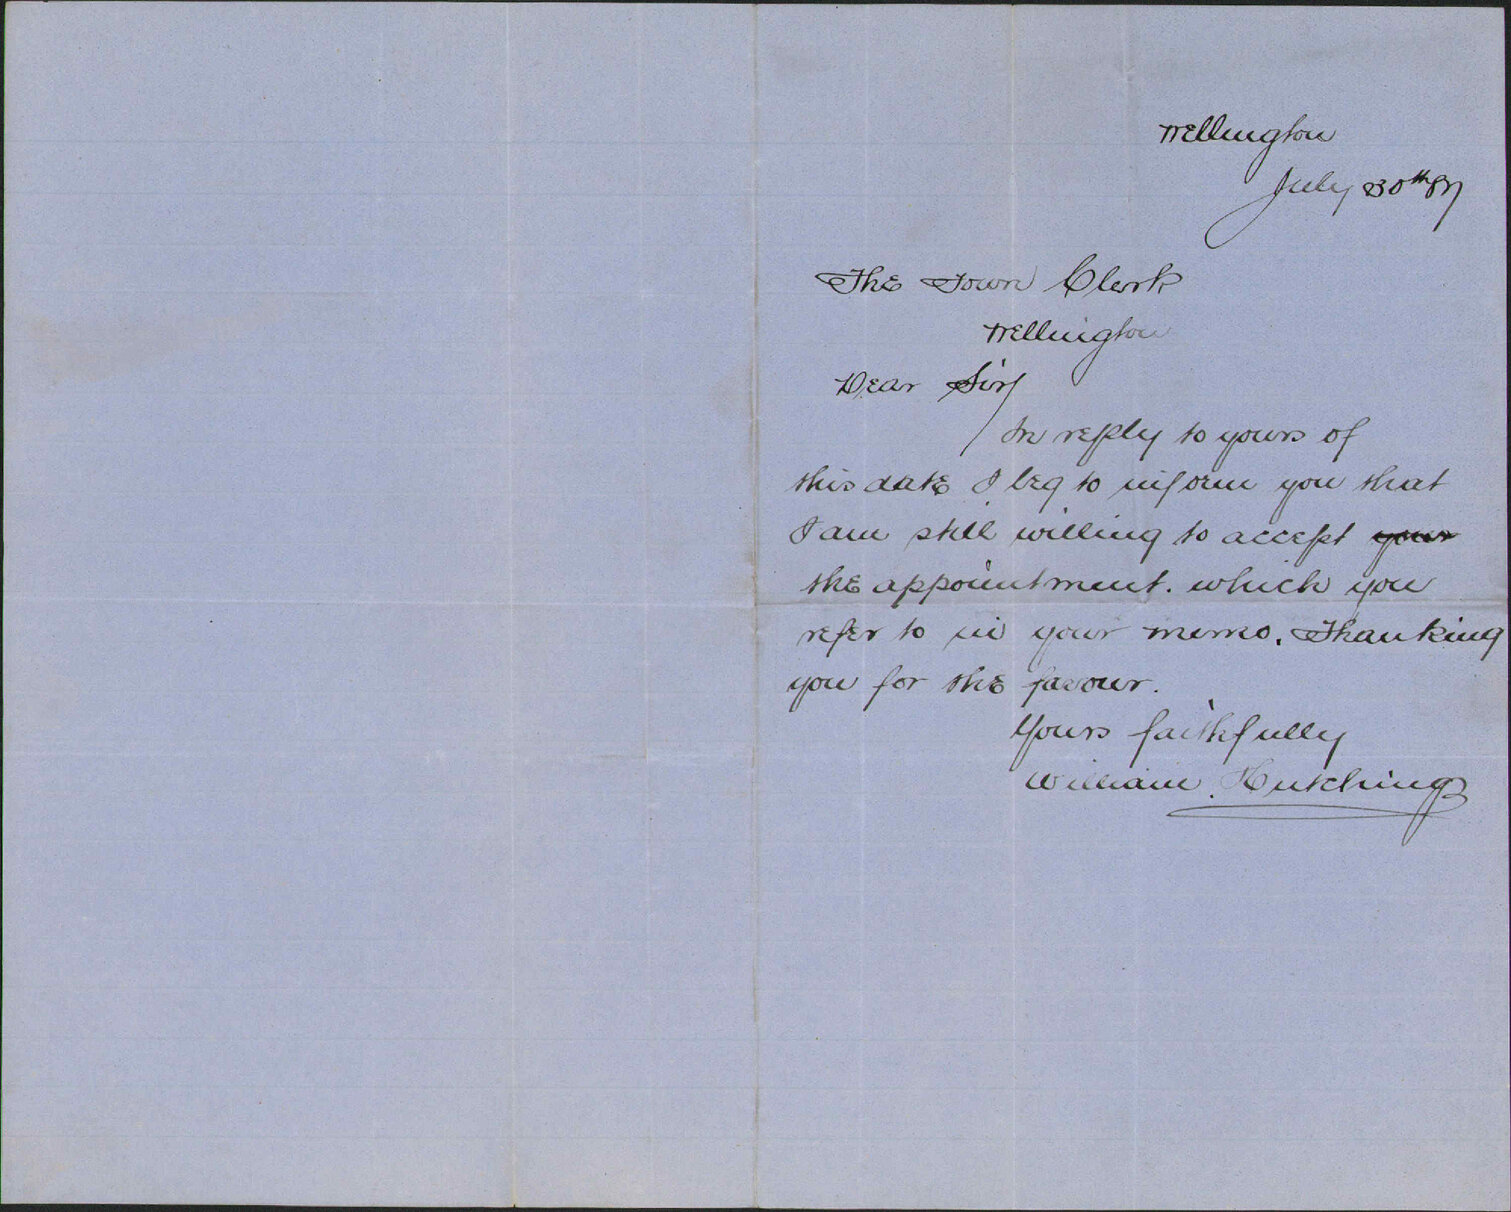 Wellington
July 30th 87
The Town Clerk
Wellington
Dear Sir/
In reply to yours of
this date I beg to inform you that
I am still willing to accept your
the appointment. which you
refer to in your memo. Thanking
you for the favour.
Yours faithfully
William. Hutchings